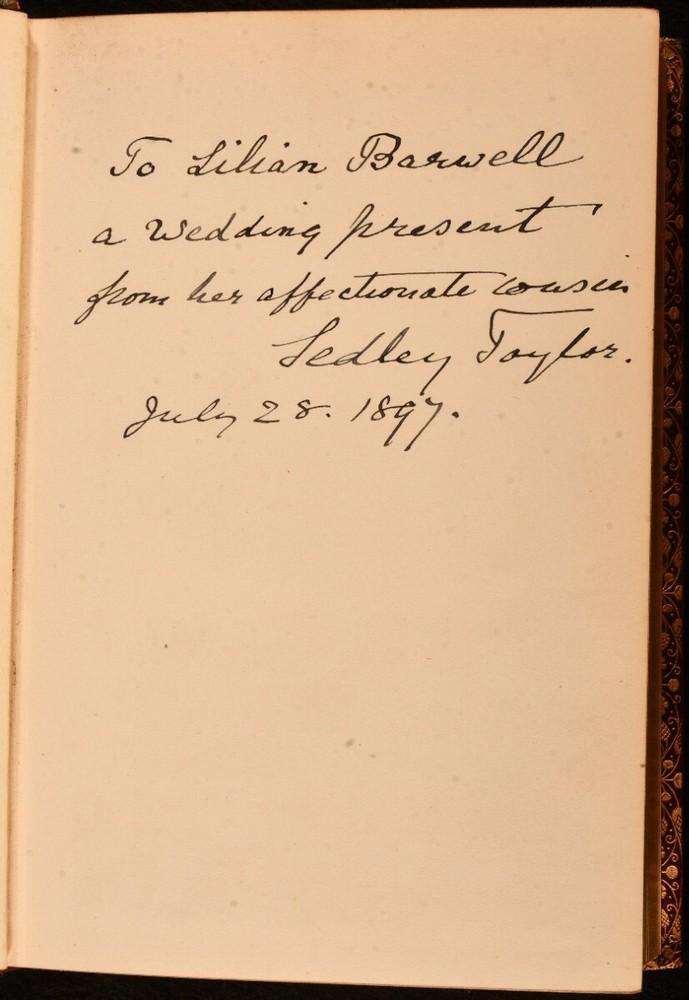 To Lilian Barwell
a Wedding present
from her affectionate cousin
Sedley Taylor.
July 28. 1897.